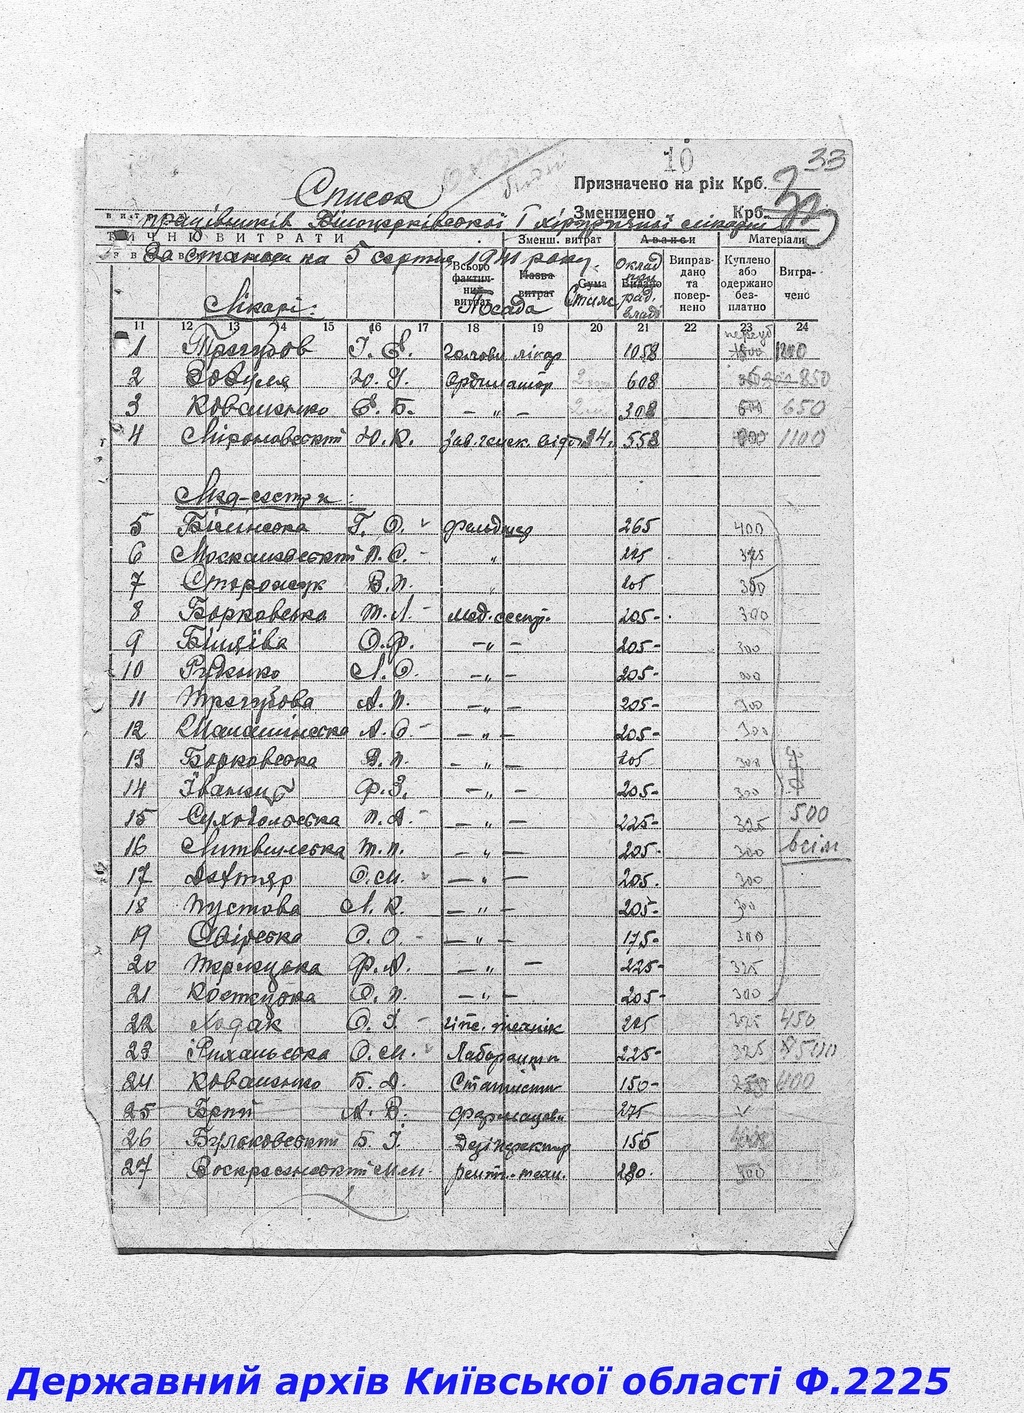 10 33
Призначено на рік Крб.
Список
Зменшено Крб.
працівників Білоцерківської І хірургічної лікарні
ТИЧНЮ ВИТРАТИ Зменш. витрат Аванси Матеріали
За станом на 5 серпня 1941 року.
Всього фактич- них витрат Назва витрат Сума Видано Виправ- дано та повер- нено Куплено або одержано без- платно Витра- чено
Лікарі: Посада Стаж Оклад при рад. владі
11 12 13 14 15 16 17 18 19 20 21 22 23 24
1 Трегубов І. Є. головн. лікар 1058
2 Зозуля Ю. У. Ординатор 608 850
3 Коваленко Є. Б. — „ — 308 650
4 Міроновський Ю. К. зав. гінек. відд. 558 1100
Мед-сестри:
5 Білінська Г. О. фельдшер 265 400
6 Москалевський П. С. „ 225 325
7 Сторожук В. П. 205 300
8 Борковська Т. Л. мед. сестр. 205 300
9 Біляїва О. Ф. — „ — 205 300
10 Руденко Л. О. — „ — 205 300
11 Трегубова А. П. — „ — 205 300
12 Малашінська А. С. — „ — 205 300
13 Борковська В. П. — „ — 205 300
14 Ф. З. — „ — 205 300
15 Суховольська П. А. — „ — 225 325 500
16 Литвинська Т. П. — „ — 205 300 всім
17 Дехтяр О. М. — „ — 205 300
18 Пустова Л. К. — „ — 205 300
19 Свірська О. О. — „ — 175 300
20 Ф. А. — „ — 225 325
21 Костецька О. П. — „ — 205 300
22 Ходак О. І. гіпс. технік 225 325 450
23 О. М. Лаборантка 225 325 500
24 Коваленко Б. А. Статистик 150 250 400
25 А. В. фармацевт 275
26 Б. І. Дезінфектор 155
27 Воскресенський М. М. рент. техн. 280 500
Державний архів Київської області Ф.2225